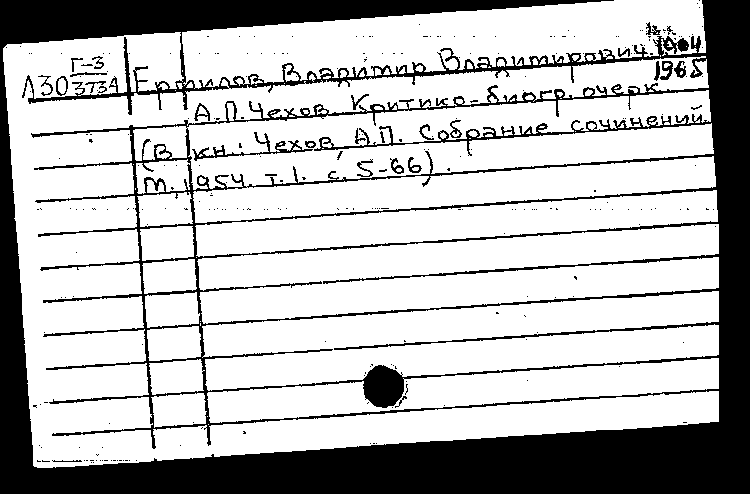 Г-3
Л30 3734 Ермилов, Владимир Владимирович. 1904
1965
А.П. Чехов. Критико-биогр. очерк.
(В кн.: Чехов, А.П. Собрание сочинений.
М., 1954. т. 1. с. 5-66).